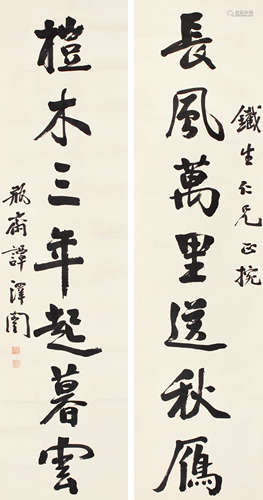 鐵生仁兄正捥
長風萬里送秋雁
榿木三年起暮雲
瓶齋譚澤闓